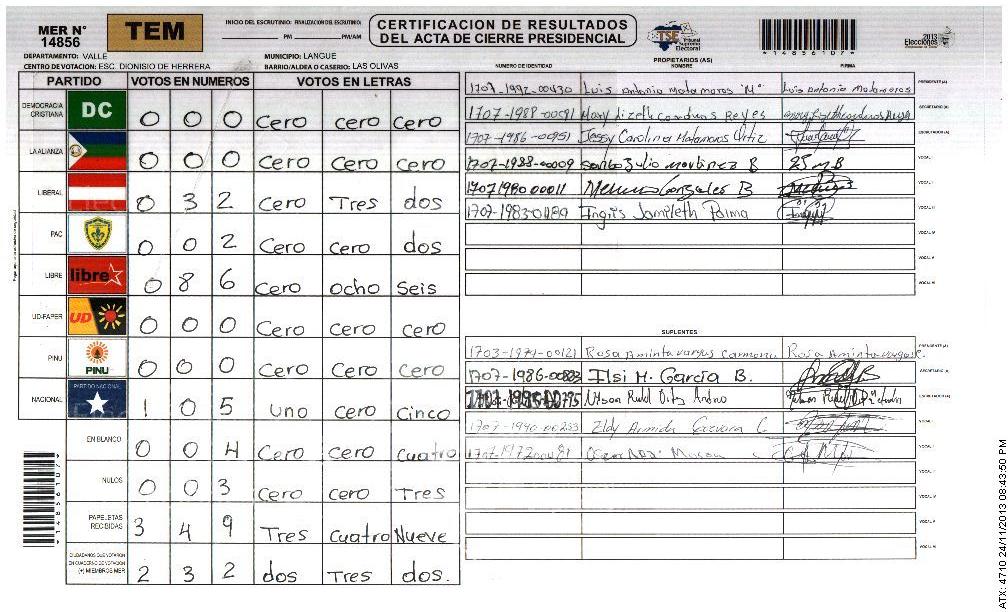 MER N° 14856
TEM
INICIO DEL ESCRUTINIO: FINALIZACION DEL ESCRUTINIO:
PM PM/AM
CERTIFICACION DE RESULTADOS
DEL ACTA DE CIERRE PRESIDENCIAL
TSE Tribunal Supremo Electoral
*14856107*
2013 Elecciones
DEPARTAMENTO: VALLE MUNICIPIO: LANGUE
CENTRO DE VOTACION: ESC. DIONISIO DE HERRERA BARRIO/ALDEA O CASERIO: LAS OLIVAS
PARTIDO VOTOS EN NUMEROS VOTOS EN LETRAS
DEMOCRACIA CRISTIANA DC 0 0 0 Cero cero cero
LA ALIANZA 0 0 0 Cero cero cero
LIBERAL 0 3 2 Cero Tres dos
PAC 0 0 2 Cero cero dos
LIBRE libre 0 8 6 Cero ocho seis
UD-FAPER UD 0 0 0 Cero cero cero
PINU PINU 0 0 0 Cero cero cero
NACIONAL PARTIDO NACIONAL 1 0 5 uno cero cinco
EN BLANCO 0 0 4 Cero cero cuatro
NULOS 0 0 3 cero cero Tres
PAPELETAS RECIBIDAS 3 4 9 Tres cuatro Nueve
CIUDADANOS QUE VOTARON EN CUADERNO DE VOTACION (+) MIEMBROS MER 2 3 2 dos Tres dos.
*14856107*
PROPIETARIOS (AS)
NUMERO DE IDENTIDAD NOMBRE FIRMA
1707-1992-00430 Luis Antonio Matamoros "M" Luis Antonio Matamoros PRESIDENTE (A)
1707-1988-00091 Mary Lizeth Cardenas Reyes SECRETARIO (A)
1707-1986-00951 Jessy Carolina Matamoros Ortiz ESCRUTADOR (A)
1707-1988-00009 Santos Julio Martinez B VOCAL I
1707 1980 00011 Gonzales B VOCAL II
1707-1983-01489 Ingris Jamileth Palma VOCAL III
VOCAL IV
VOCAL V
VOCAL VI
SUPLENTES
1703-1977-00121 Rosa Aminta vargas Rosa Aminta vargas PRESIDENTE (A)
1707-1986-00883 Ilsi M. García B. SECRETARIO (A)
ESCRUTADOR (A)
1707-1990-00233 Eldy Armida Guevara C VOCAL I
VOCAL II
VOCAL III
VOCAL IV
VOCAL V
VOCAL VI
ATX: 4710 24/11/2013 08:43:50 PM